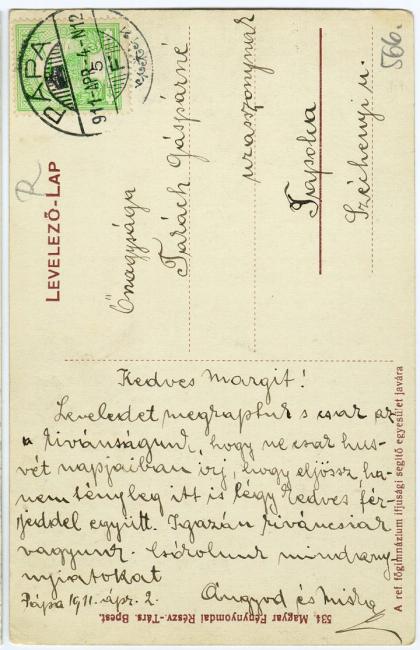 LEVELEZŐ-LAP
R
566.
PÁPA
911-APR.-4.-N12
5
F
Őnagysága
Tarách Gáspárné
urasszonynak
Tapolca
Széchenyi u.
Kedves Margit!
Leveledet megkaptuk s csak az
a kivánságunk, hogy ne csak hus-
vét napjaiban irj, hogy eljössz, ha-
nem tényleg itt is légy kedves fér-
jeddel együtt. Igazán kiváncsiak
vagyunk. Csókolunk mindany-
nyiatokat
Pápa 1911. ápr. 2.
Ángyod és Miska
534 Magyar Fénynyomdai Részv.-Társ. Bpest.
A ref főgimnázium ifjusági segitő egyesület javára